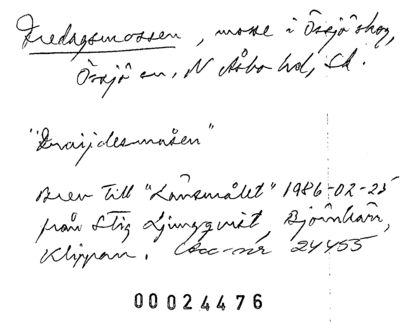 Fredagsmossen, mosse i Össjö skog,
Össjö sn, N Åsbo hd, Sk.
"Fraijdesmåsen"
Brev till "Länsmålet" 1986-02-25
från Stig Ljungqvist, Björnhäll,
Klippan. Acc-nr 24455
00024476